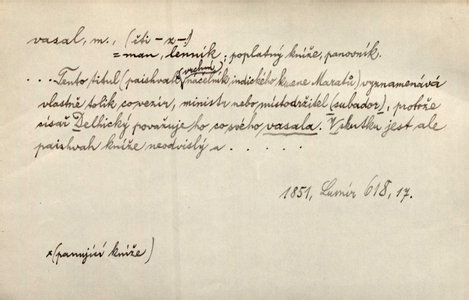 vasal, m., (čti - z -)
= man, lenník; poplatný kníže, panovník.
.... Tento titul (paishwah x vrchní náčelník indického kmene Maratě) vyznamenává
vlastně tolik co vezír, ministr nebo místodržitel (subador), protože
císař Delhický považuje ho co svého vasala. Vskutku jest ale
paishwah kníže neodvislý a . . . . .
1851, Lumír 618, 17.
x (panující kníže)